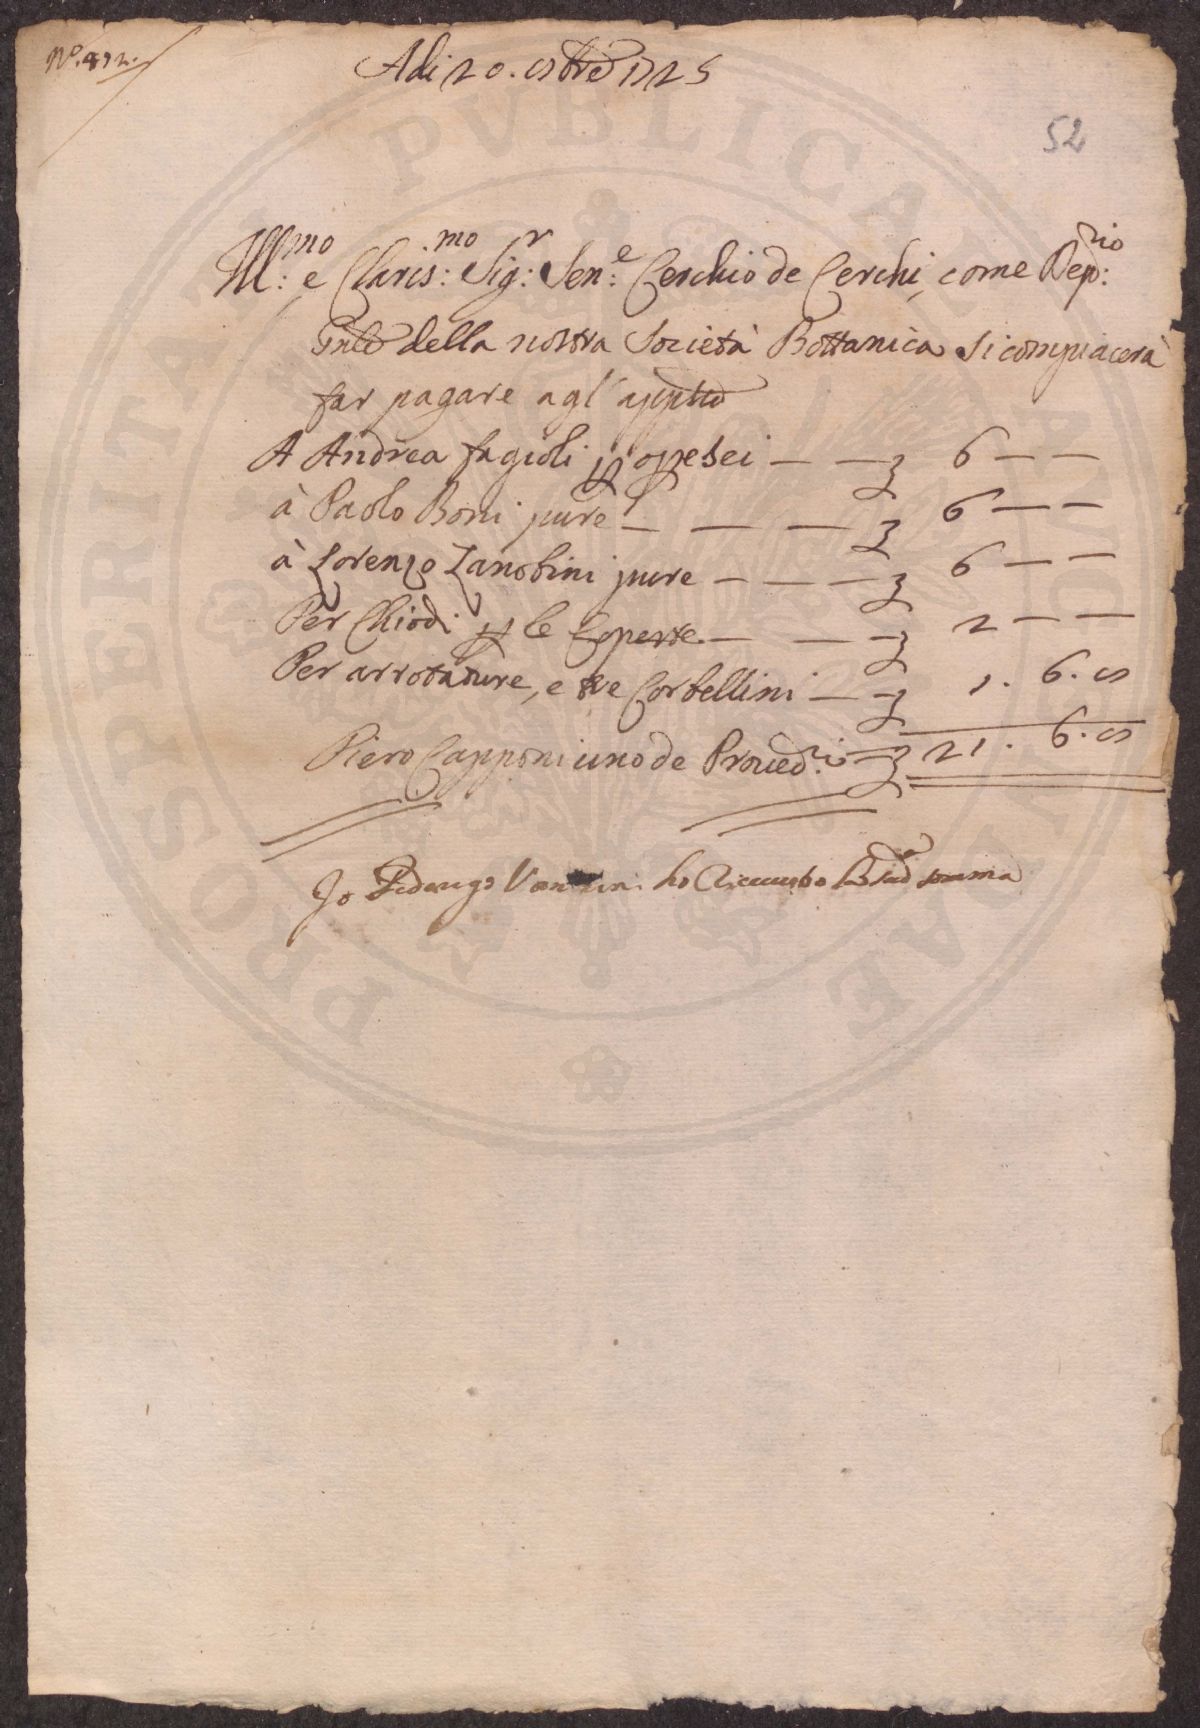 N.º 492.
Adi 20. 9bre 1725
52
Ill:mo e Claris:mo Sig:r Sen:e Cerchio de Cerchi, come Dep:rio
Gnle della nostra Società Bottanica si compiacerà
far pagare agl'
A Andrea fagioli p opesei — — 6 — —
à Paolo Boni pure — — — 6 — —
à Lorenzo Zanobini pure — — — 6 — —
Per Chiodi p le Coperte. — — — 2 — —
Per arrotature, e tre Corbellini — — 1. 6. 8
Piero Capponi uno de Proved:ri — 21. 6. 8
Io Federigo ho Riceuuto la somma
PROSPERITATI PVBLICAE AVGENDAE